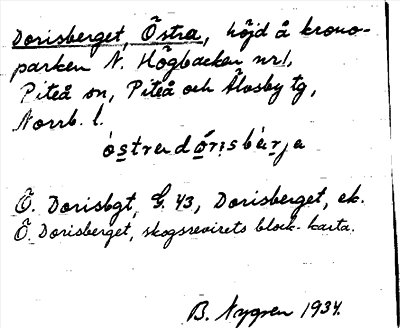 Dorisberget, Östra, höjd å krono-
parken N. Högbacken nr 1,
Piteå sn, Piteå och Älvsby tg,
Norrb. l.
östra dårisbärja
Ö. Dorisbgt, G. 43, Dorisberget, ek.
Ö. Dorisberget, skogsrevirets block-karta.
B. Nygren 1934.